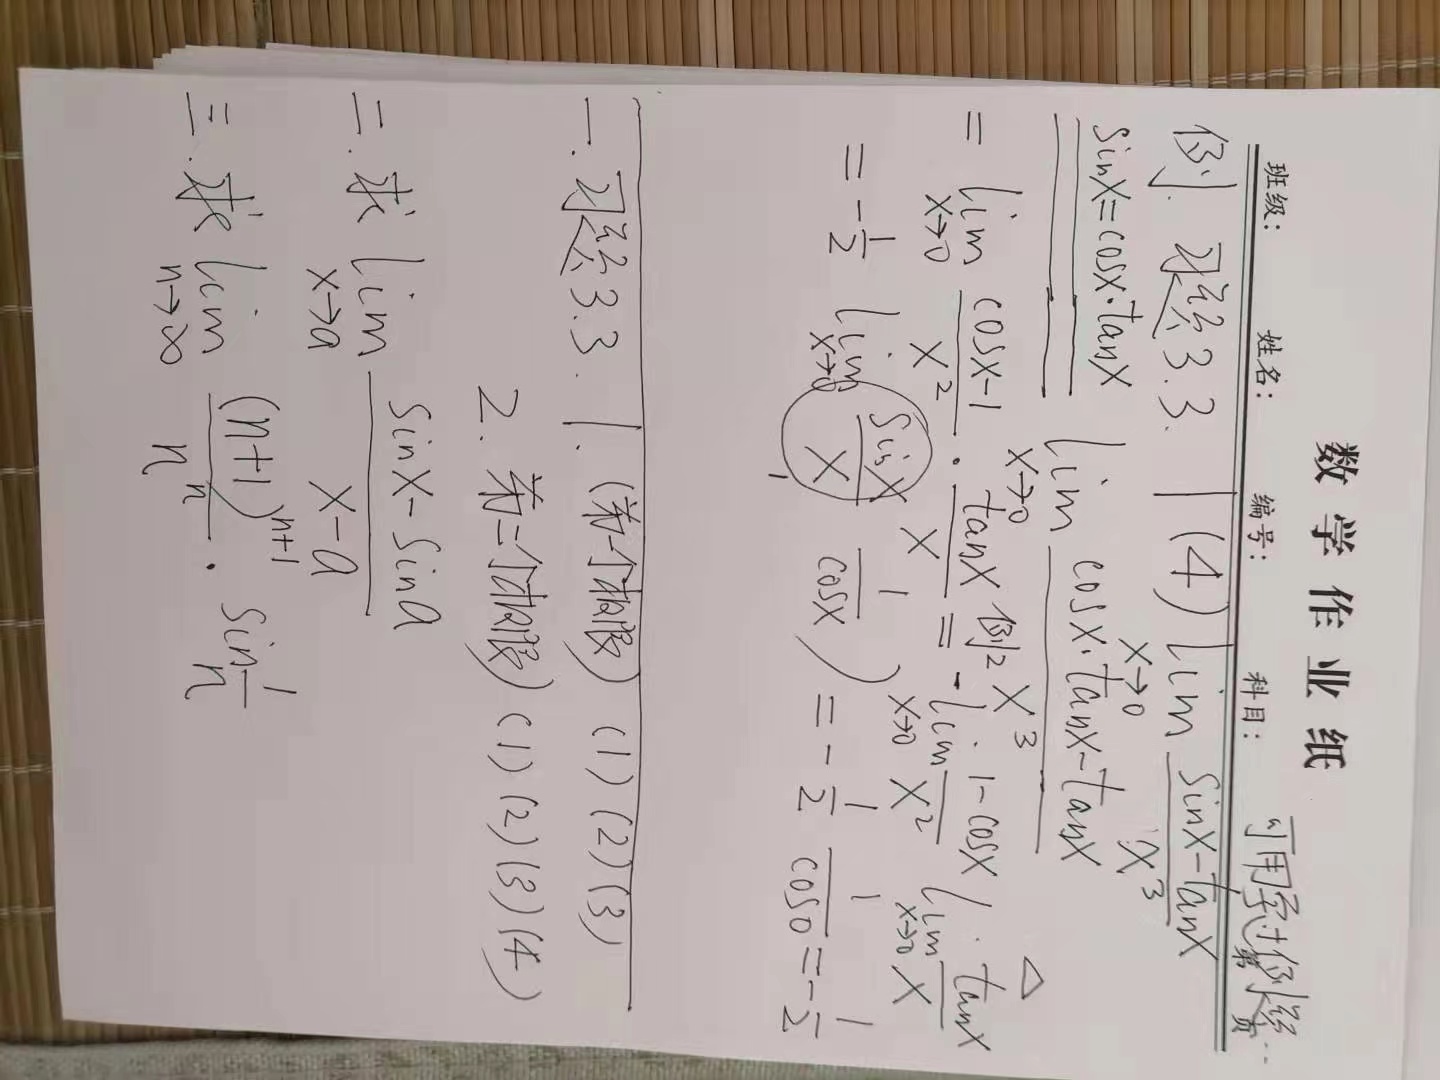 数学作业纸
班级： 姓名： 编号： 科目： 第 页
例. 习题3.3. 1 (4) lim x→0 (sinx-tanx)/x³
sinx=cosx·tanx lim x→0 (cosx·tanx-tanx)/x³
= lim x→0 (cosx-1)/x² · tanx/x 例2 = -lim x→0 (1-cosx)/x² · lim x→0 tanx/x
= -1/2 lim x→0 (sinx/x 1/cosx) = -1/2 1/cos0 = -1/2
一. 习题3.3. 1. (第一个极限) (1)(2)(3)
2. 第二个极限) (1)(2)(3)(4)
二. 求 lim x→a (sinx-sina)/(x-a)
三. 求 lim n→∞ (n+1)ⁿ⁺¹/nⁿ · sin 1/n